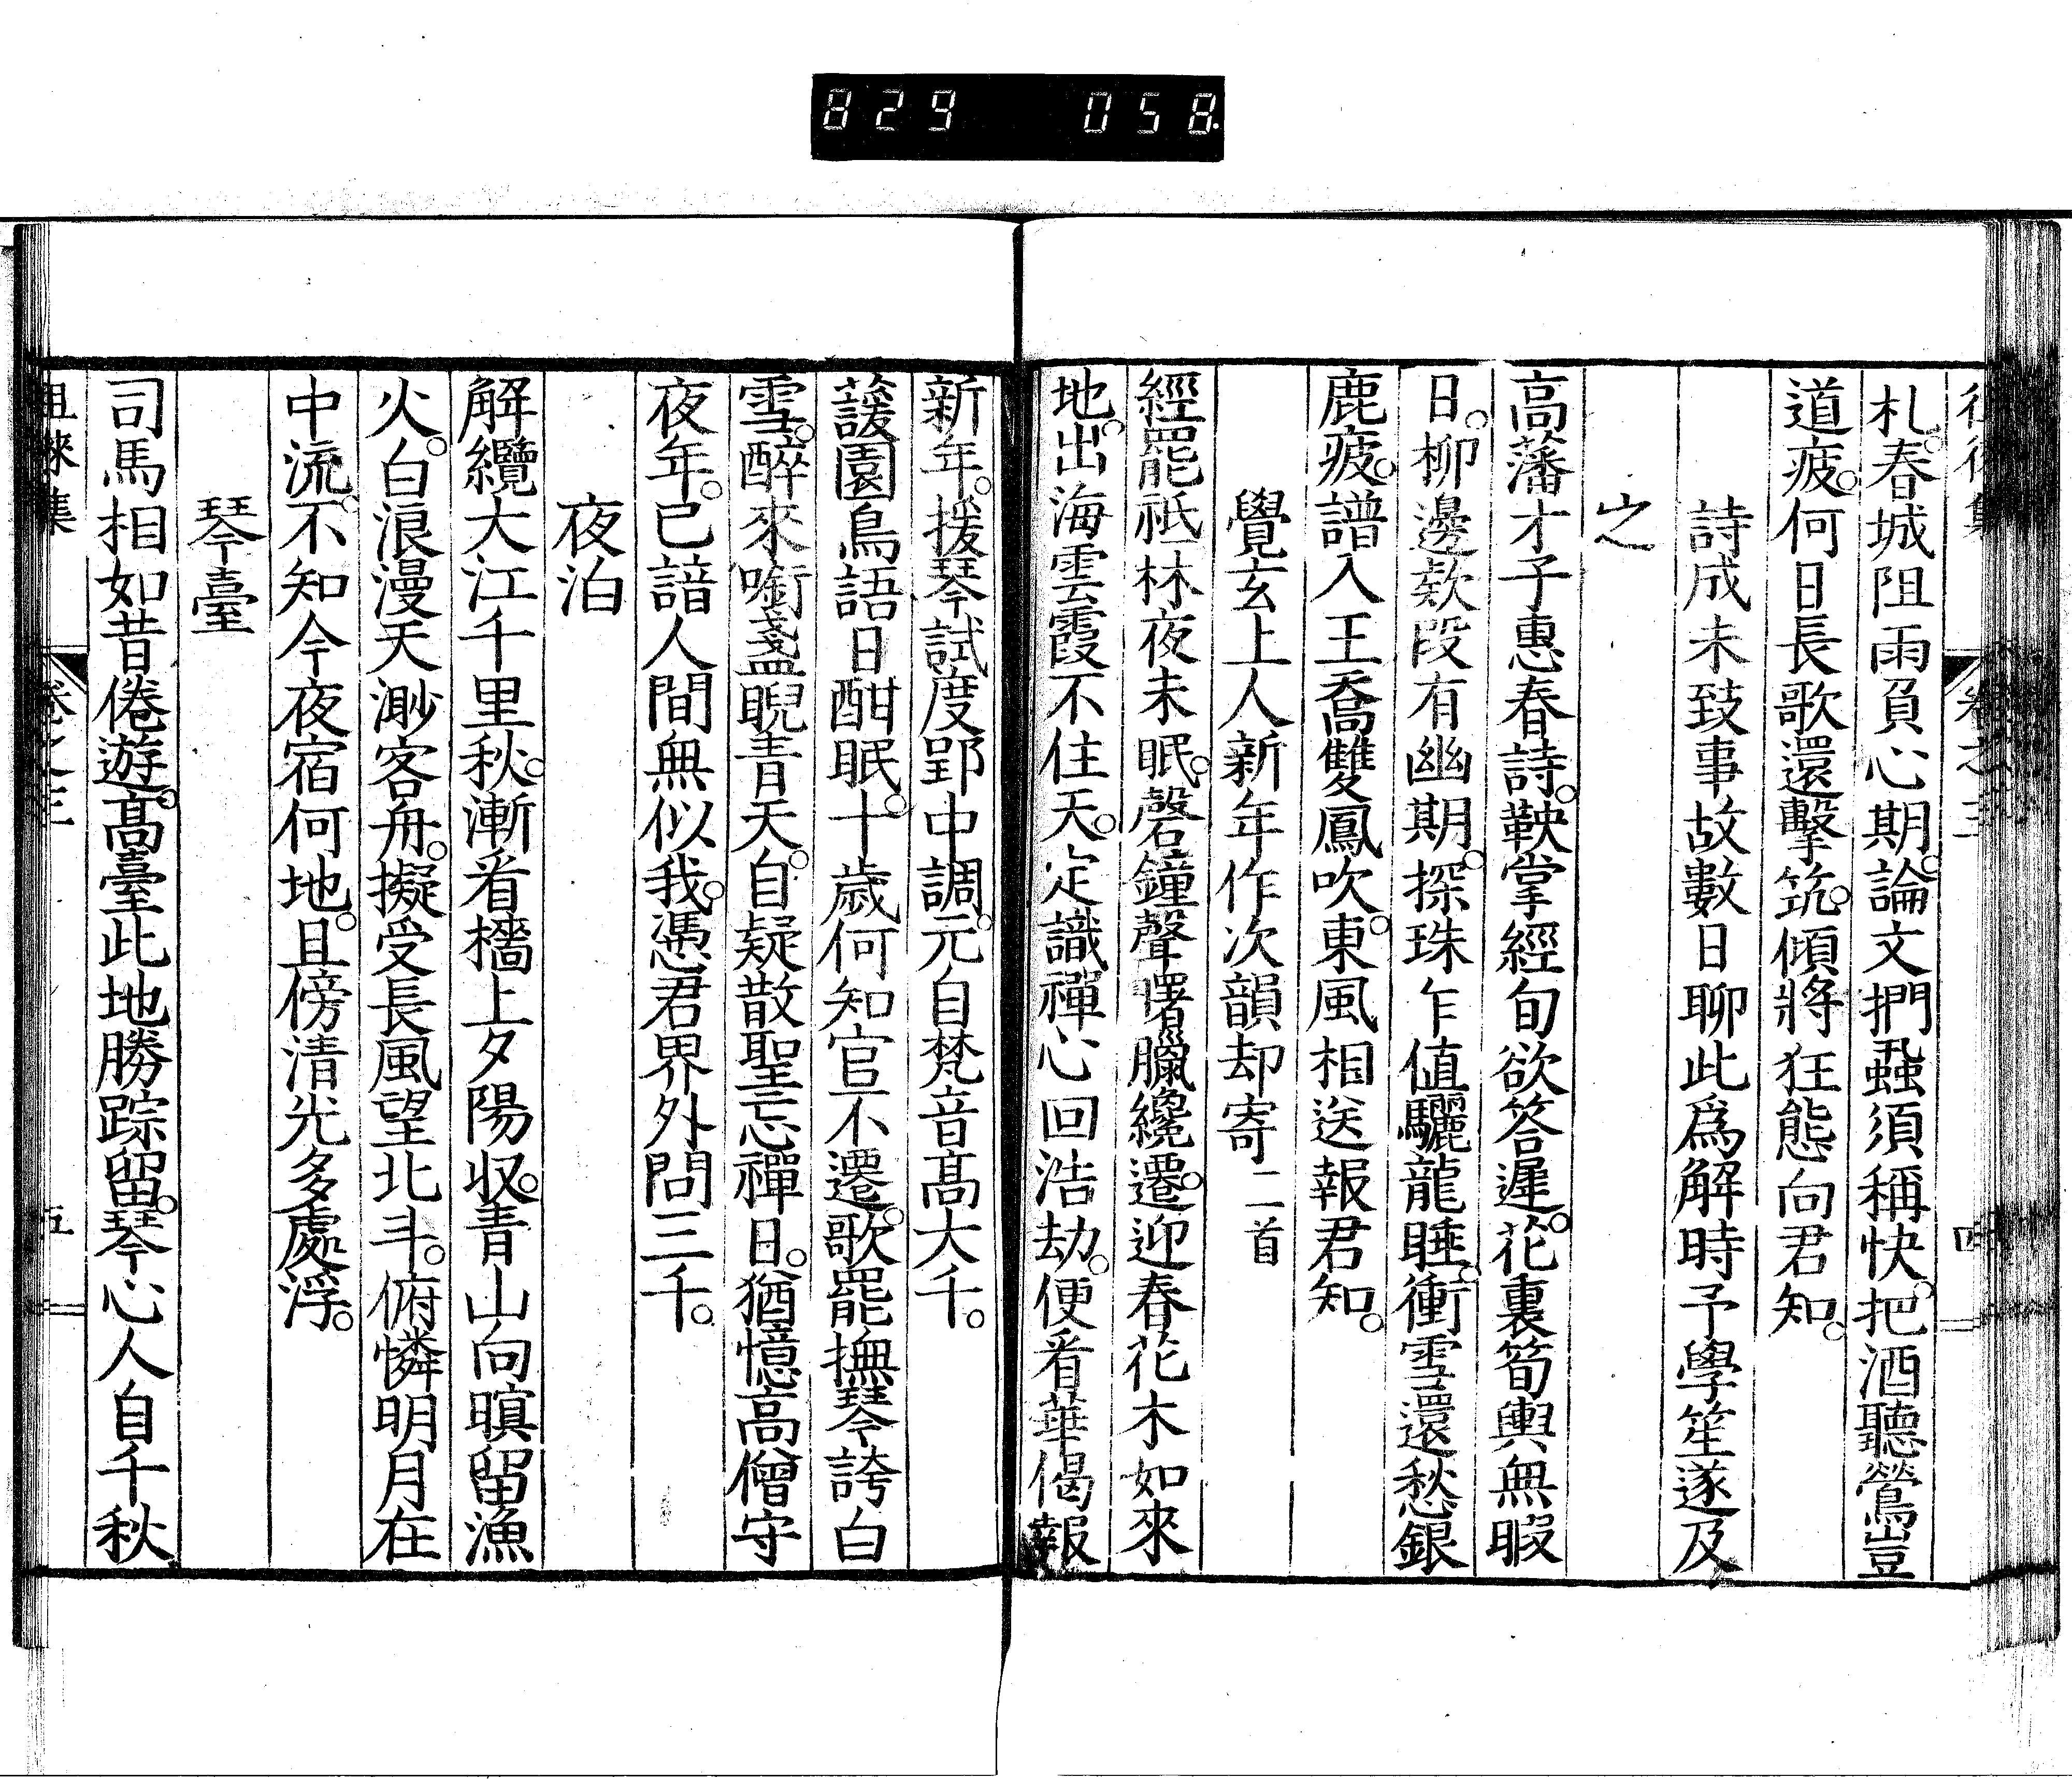 829 058
札。春城阻雨負心期。論文捫蝨須稱快。把酒聽鶯豈
道疲。何日長歌還擊筑。傾將狂態向君知。
詩成未致事故數日聊此爲解時予學笙遂及
之
高藩才子惠春詩。鞅掌經旬欲答遲。花裏筍輿無暇
日。柳邊欵段有幽期。探珠乍値驪龍睡。衝雪還愁銀
鹿疲。譜入王喬雙鳳吹。東風相送報君知。
覺玄上人新年作次韻却寄二首
經罷祇林夜未眠。磬鐘聲曙臘纔遷。迎春花木如來
地。出海雲霞不住天。定識禪心回浩劫。便看華偈報
新年。援琴試度郢中調。元自梵音髙大千。
蘐園鳥語日酣眠。十歲何知官不遷。歌罷撫琴誇白
雪。醉來啣盞睨青天。自疑散聖忘禪日。猶憶高僧守
夜年。已諳人間無似我。憑君界外問三千。
夜泊
解纜大江千里秋。漸看檣上夕陽収。青山向暝留漁
火。白浪漫天渺客舟。擬受長風望北斗。俯憐明月在
中流。不知今夜宿何地。且傍清光多處浮。
琴臺
司馬相如昔倦遊。髙臺此地勝踪留。琴心人自千秋
徠集 卷之三 五